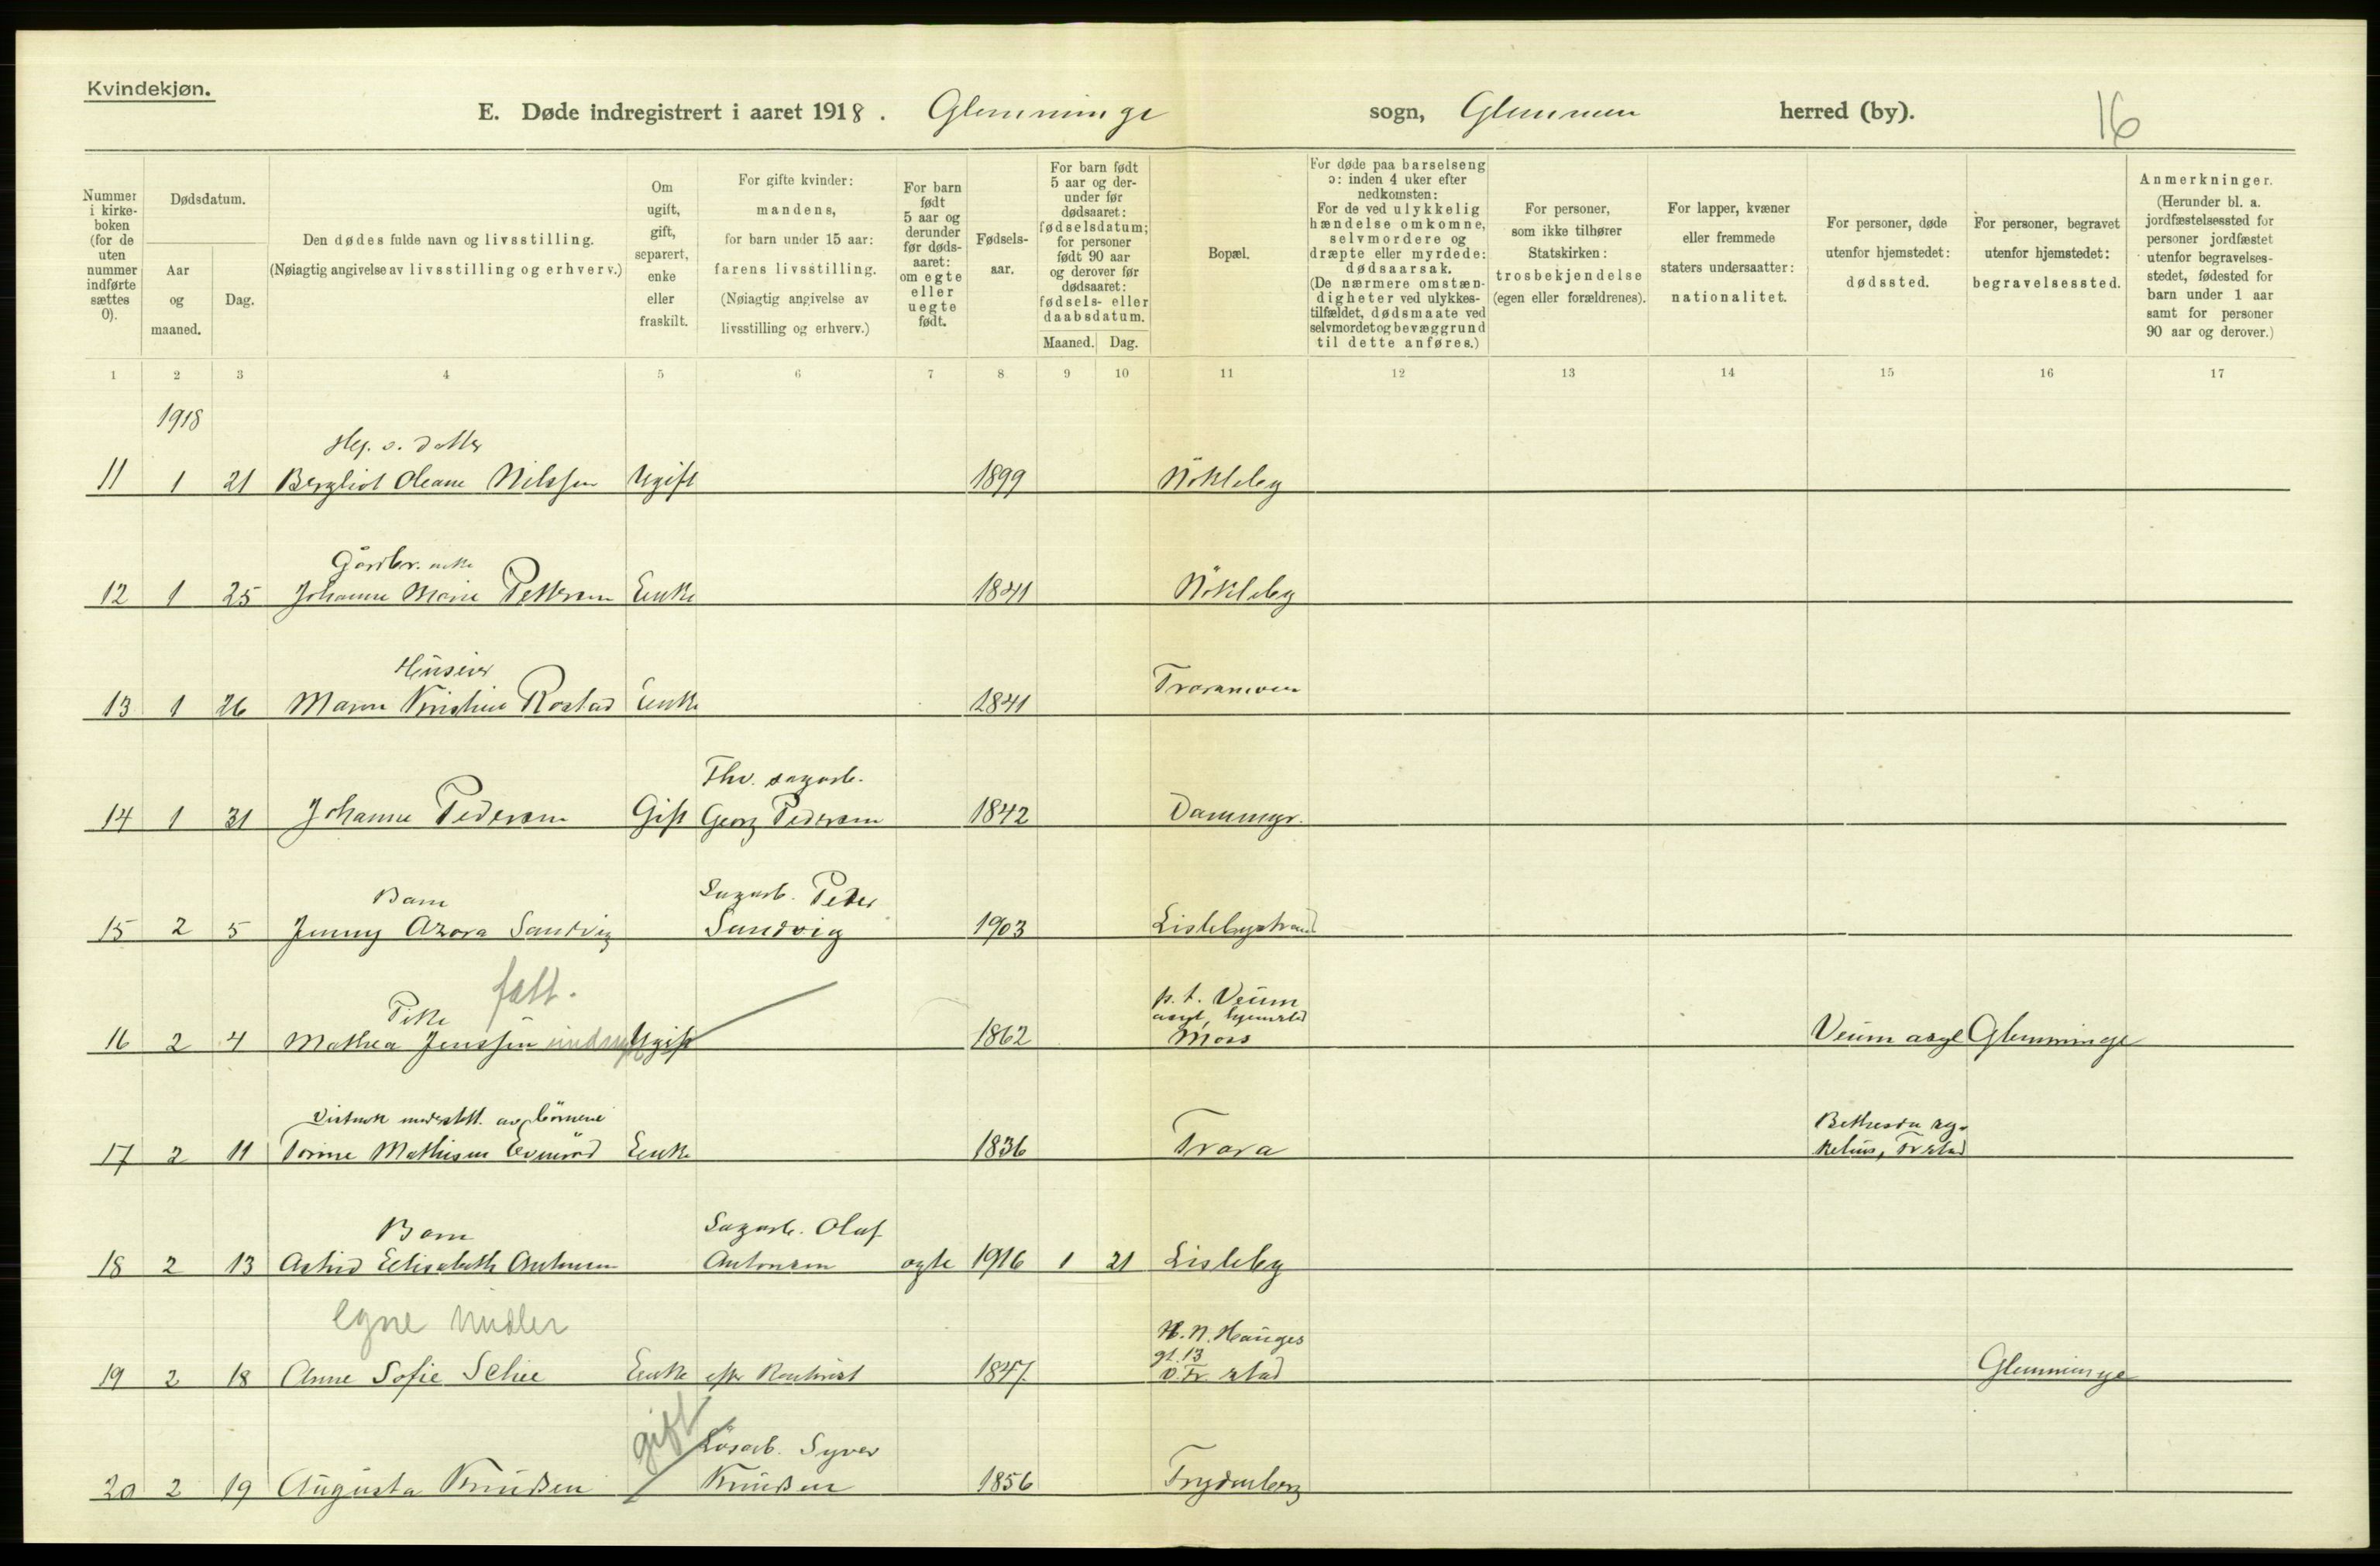 Kvindekjøn.
E. Døde indregistrert i aaret 1918. Glemminge sogn, Glemmen herred (by).
16
Nummer i kirke-boken (for de uten nummer indførte sættes 0).
Dødsdatum.
Aar og maaned.
Dag.
Den dødes fulde navn og livsstilling.
(Nøiagtig angivelse av livsstilling og erhverv.)
Om ugift, gift, separert, enke eller fraskilt.
For gifte kvinder: mandens, for barn under 15 aar: farens livsstilling. (Nøiagtig angivelse av livsstilling og erhverv.)
For barn født 5 aar og derunder før døds-aaret: om egte eller uegte født.
Fødsels-aar.
For barn født 5 aar og der-under før dødsaaret: fødselsdatum; for personer født 90 aar og derover før dødsaaret: fødsels- eller daabsdatum.
Maaned. Dag.
Bopæl.
For døde paa barselseng ɔ: inden 4 uker efter nedkomsten: For de ved ulykkelig hændelse omkomne, selvmordere og dræpte eller myrdede: dødsaarsak. (De nærmere omstæn-digheter ved ulykkes-tilfældet, dødsmaate ved selvmordet og bevæggrund til dette anføres.)
For personer, som ikke tilhører Statskirken: trosbekjendelse (egen eller forældrenes).
For lapper, kvæner eller fremmede staters undersaatter: nationalitet.
For personer, døde utenfor hjemstedet: dødssted.
For personer, begravet utenfor hjemstedet: begravelsessted.
Anmerkninger. (Herunder bl. a. jordfæstelsessted for personer jordfæstet utenfor begravelses-stedet, fødested for barn under 1 aar samt for personer 90 aar og derover.)
1 2 3 4 5 6 7 8 9 10 11 12 13 14 15 16 17
1918
datter
11 1 21 Bergliot Oleane Nilssen Ugift 1899 Nökleby
Gårdbr. enke
12 1 25 Johanne Marie Pettersen Enke 1841 Nökleby
13 1 26 Maren Kristine Rostad Enke 1841
Fhv. sagarb.
14 1 31 Johanne Pedersen Gift Georg Pedersen 1842 Dammyr.
Barn Sagarb. Peder
15 2 5 Jenny Azora Sandvig Sandvig 1903 Lislebystrand
fatt.
Pike p. t. Veum
asyl, hjemsted
16 2 4 Mathea Jenssen Ugift 1862 Moss Veum asyl Glemminge
av börnene Bethesda sy-
17 2 11 Mathisen Enke 1836 Trara kehus, Fr.stad
Barn Sagarb. Olaf
18 2 13 Astrid Elisabeth Antonsen Antonsen egte 1916 1 21 Lisleby
egne midler H. N. Hauges
gt. 13
19 2 18 Anne Sofie Schie Enke efter 1847. Ö. Fr. stad Glemminge
gift Lösarb. Syver
20 2 19 Augusta Knudsen Knudsen 1856 Frydenberg